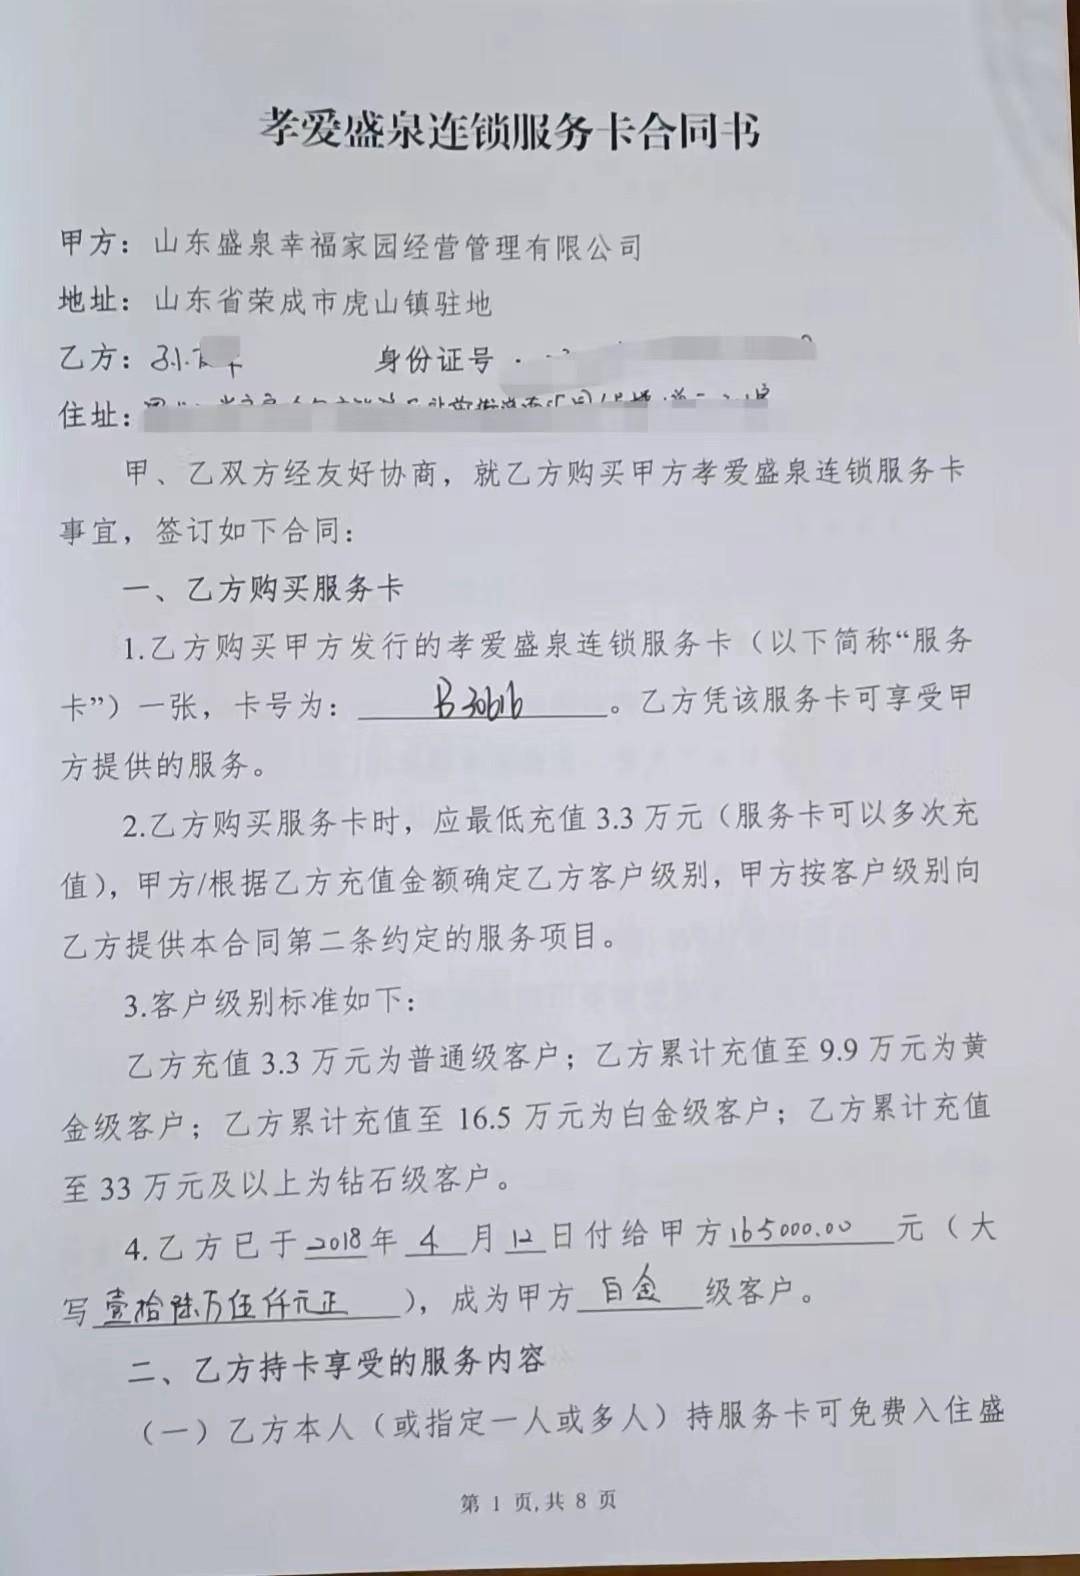 孝爱盛泉连锁服务卡合同书
甲方：山东盛泉幸福家园经营管理有限公司
地址：山东省荣成市虎山镇驻地
乙方：
身份证号
住址：
甲、乙双方经友好协商，就乙方购买甲方孝爱盛泉连锁服务卡
事宜，签订如下合同：
一、乙方购买服务卡
1.乙方购买甲方发行的孝爱盛泉连锁服务卡（以下简称“服务
卡”）一张，卡号为：B30616。乙方凭该服务卡可享受甲
方提供的服务。
2.乙方购买服务卡时，应最低充值 3.3 万元（服务卡可以多次充
值），甲方/根据乙方充值金额确定乙方客户级别，甲方按客户级别向
乙方提供本合同第二条约定的服务项目。
3.客户级别标准如下：
乙方充值 3.3 万元为普通级客户；乙方累计充值至 9.9 万元为黄
金级客户；乙方累计充值至 16.5 万元为白金级客户；乙方累计充值
至 33 万元及以上为钻石级客户。
4.乙方已于2018年 4 月12日付给甲方165000.00 元（大
写壹拾陆万伍仟元正），成为甲方 白金 级客户。
二、乙方持卡享受的服务内容
（一）乙方本人（或指定一人或多人）持服务卡可免费入住盛
第 1 页,共 8 页